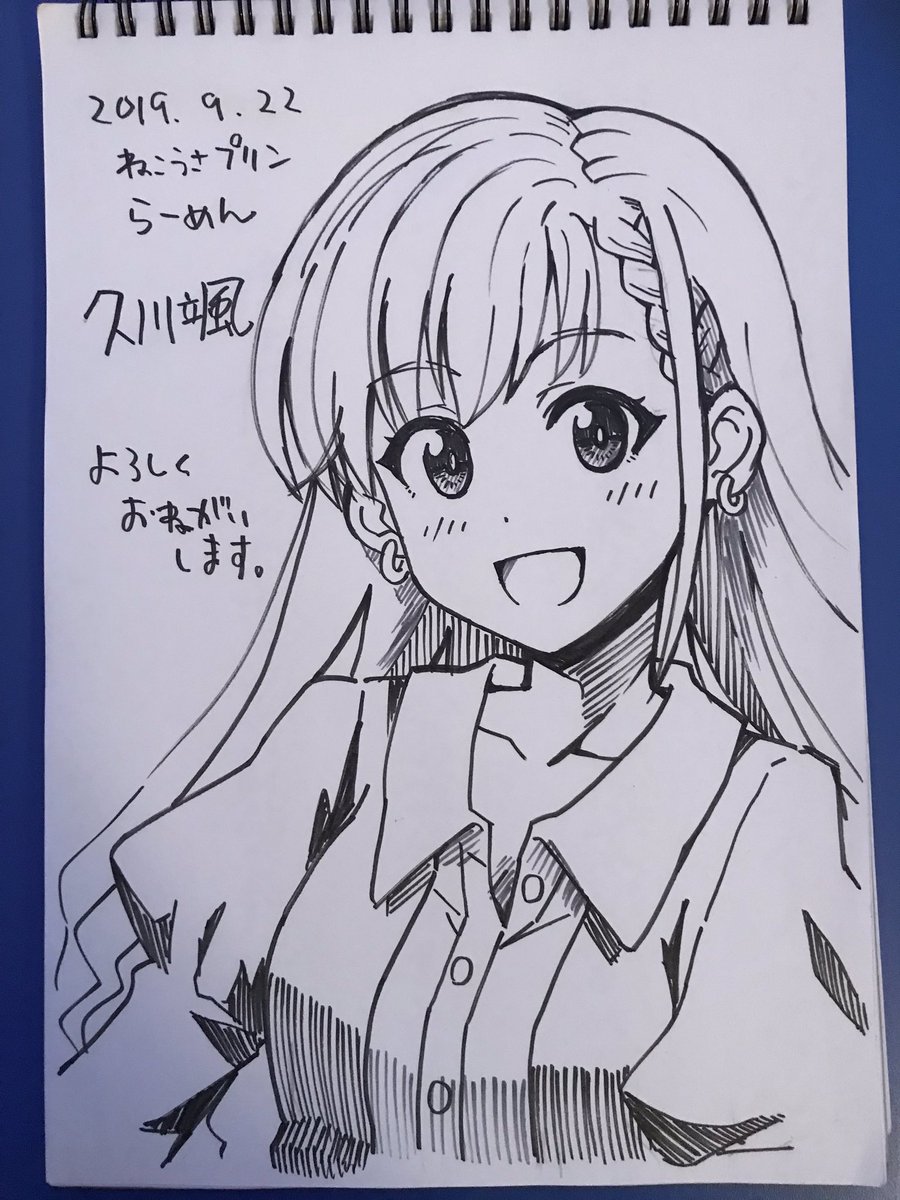 2019.9.22
ねこうさプリン
らーめん
久川颯
よろしく
おねがい
します。